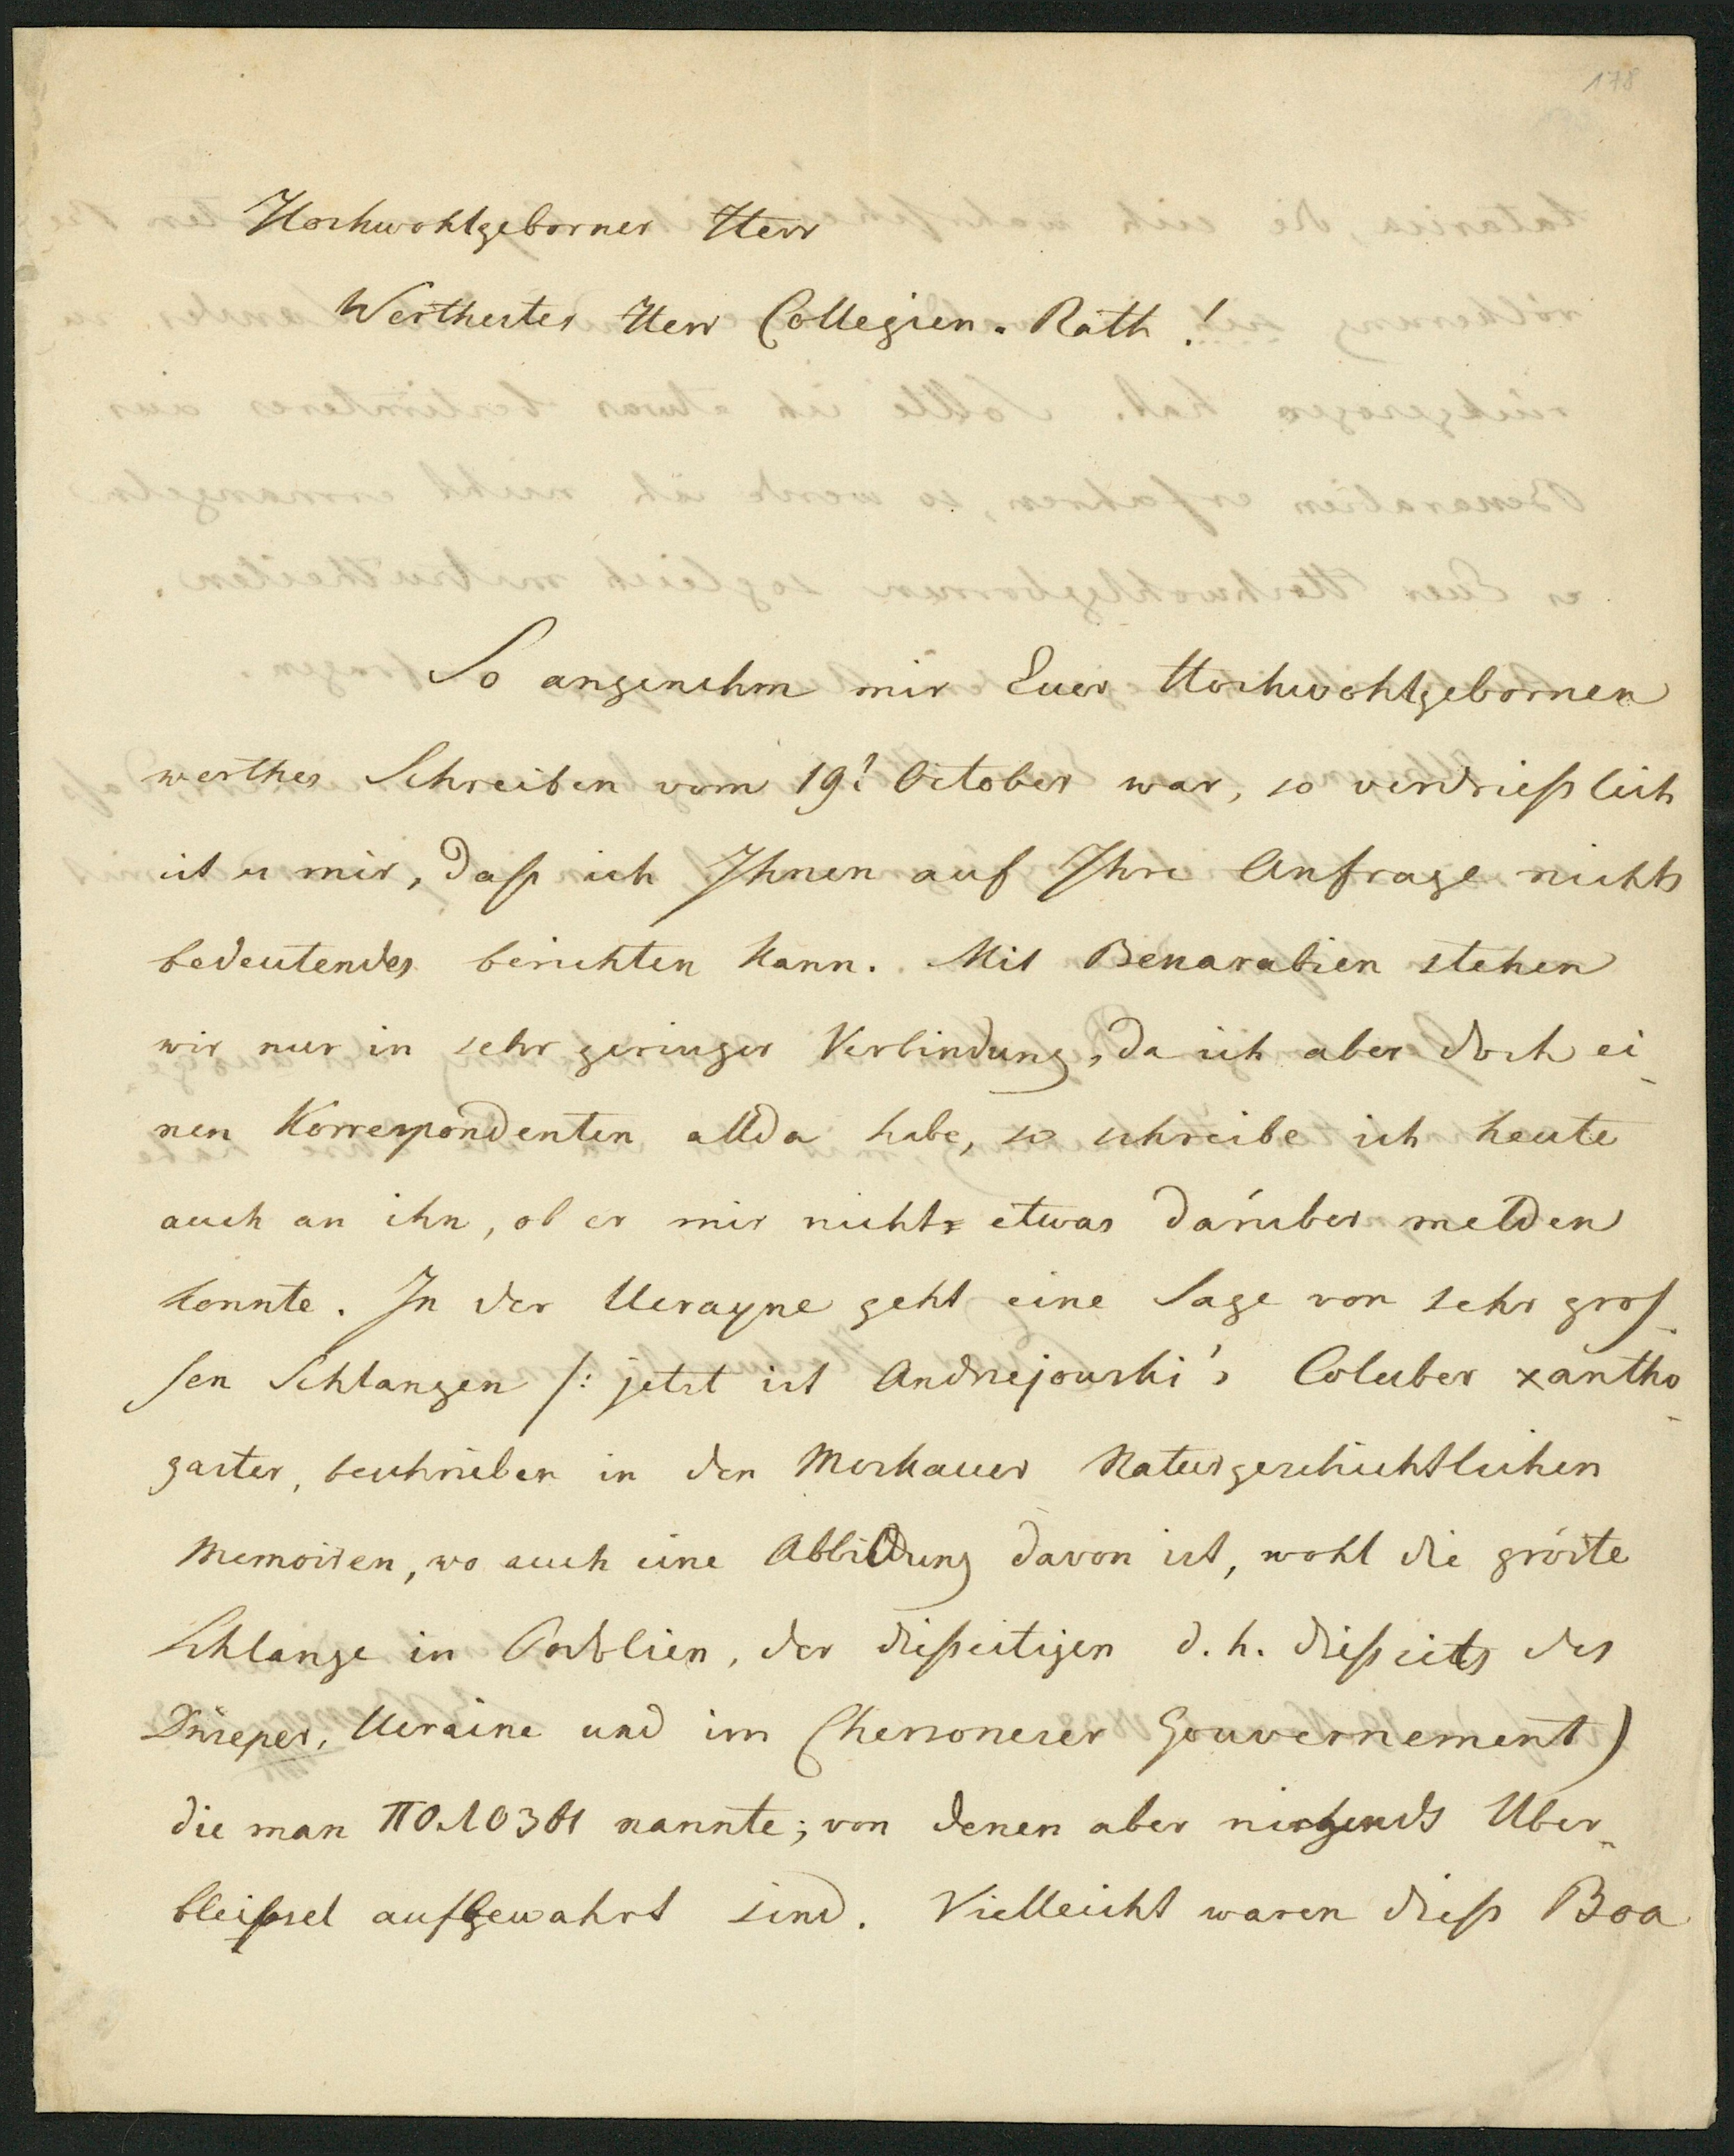 178
Hochwohlgeborner Herr
Werthester Herr Collegien-Rath!
So angenehm mir Euer Hochwohlgebornen
werthes Schreiben vom 19t October war, so verdrießlich
ist es mir, daß ich Ihnen auf Ihre Anfrage nichts
bedeutendes berichten kann. Mit Bessarabien stehen
wir nur in sehr geringer Verbindung, da ich aber doch ei-
nen Korrespondenten allda habe, so schreibe ich heute
auch an ihn, ob er mir nicht etwas darüber melden
konnte. In der Ucrayne geht eine Sage von sehr gros-
sen Schlangen /: jetzt ist Andrejouski's Coluber xantho-
gaster, beschrieben in den Moskauer Naturgeschichtlichen
Memoiren, wo auch eine Abbildung davon ist, wohl die gröste
Schlange in Podolien, der dießeitigen d. h. dießeits des
Dnieper, Ucraine und im Chersoneser Gouvernement)
die man ПОЛОЗЫ nannte; von denen aber nirgends Über-
bleißsel aufbewahrt sind. Vielleicht waren dieß Boa